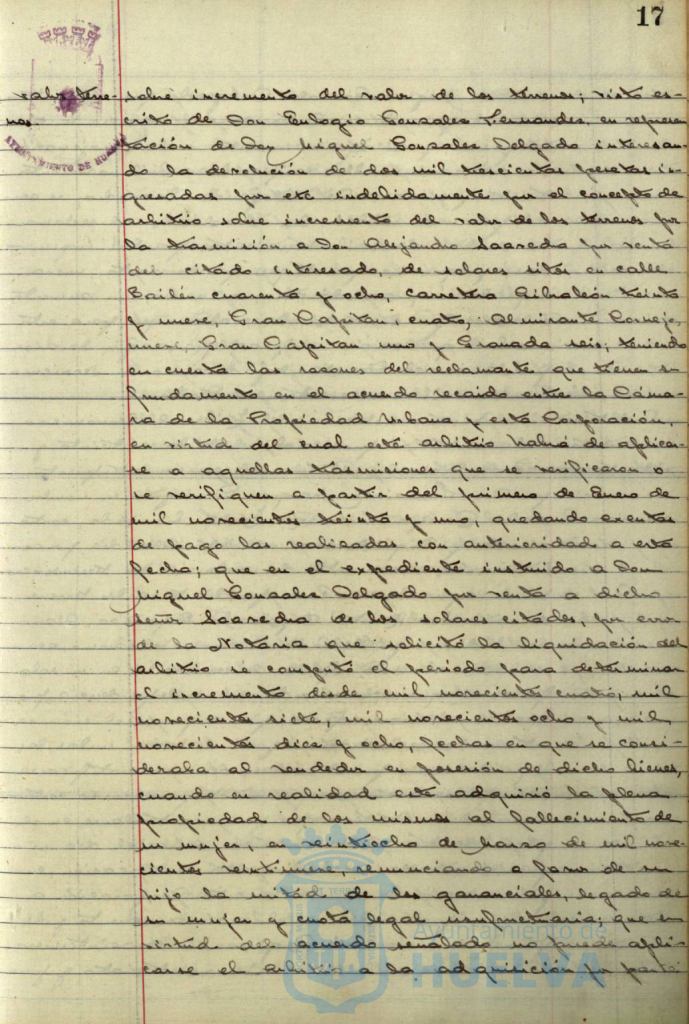 17
valor terre-
nos.
AYUNTAMIENTO DE HUELVA
sobre incremento del valor de los terrenos; visto es-
crito de Don Eulogio Gonzalez Fernandez, en represen
tación de Don Miguel Gonzalez Delgado interesan-
do la devolución de dos mil trescientas pesetas in-
gresadas por este indebidamente por el concepto de
arbitrio sobre incremento del valor de los terrenos por
la trasmisión a Don Alejandro Saavedra por venta
del citado interesado, de solares sitos en calle
Bailén cuarenta y ocho, carretera Gibraleón treinta
y nueve, Gran Capitan, cuatro, Almirante Cornejo,
nueve, Gran Capitan uno y Granada seis; teniendo
en cuenta las razones del reclamante que tienen su
fundamento en el acuerdo recaido entre la Cáma-
ra de la Propiedad Urbana y esta Corporación,
en virtud del cual este arbitrio habrá de aplicar-
se a aquellas trasmisiones que se verificaron o
se verifiquen a partir del primero de Enero de
mil novecientos treinta y uno, quedando exentas
de pago las realizadas con anterioridad a esta
fecha; que en el expediente instruido a Don
Miguel Gonzalez Delgado por venta a dicho
señor Saavedra de los solares citados, por error
de la Notaría que solicitó la liquidación del
arbitrio se computó el período para determinar
el incremento desde mil novecientos cuatro, mil
novecientos siete, mil novecientos ocho y mil
novecientos diez y ocho, fechas en que se consi-
deraba al vendedor en posesión de dicho bienes,
cuando en realidad este adquirió la plena
propiedad de los mismos al fallecimiento de
su mujer, en veintiocho de Marzo de mil nove-
cientos veintinueve, renunciando a favor de su
hijo la mitad de los gananciales, legado de
su mujer y cuota legal usufructuaria; que en
virtud del acuerdo señalado no puede apli-
carse el arbitrio a la adquisición por parte
Ayuntamiento de
HUELVA